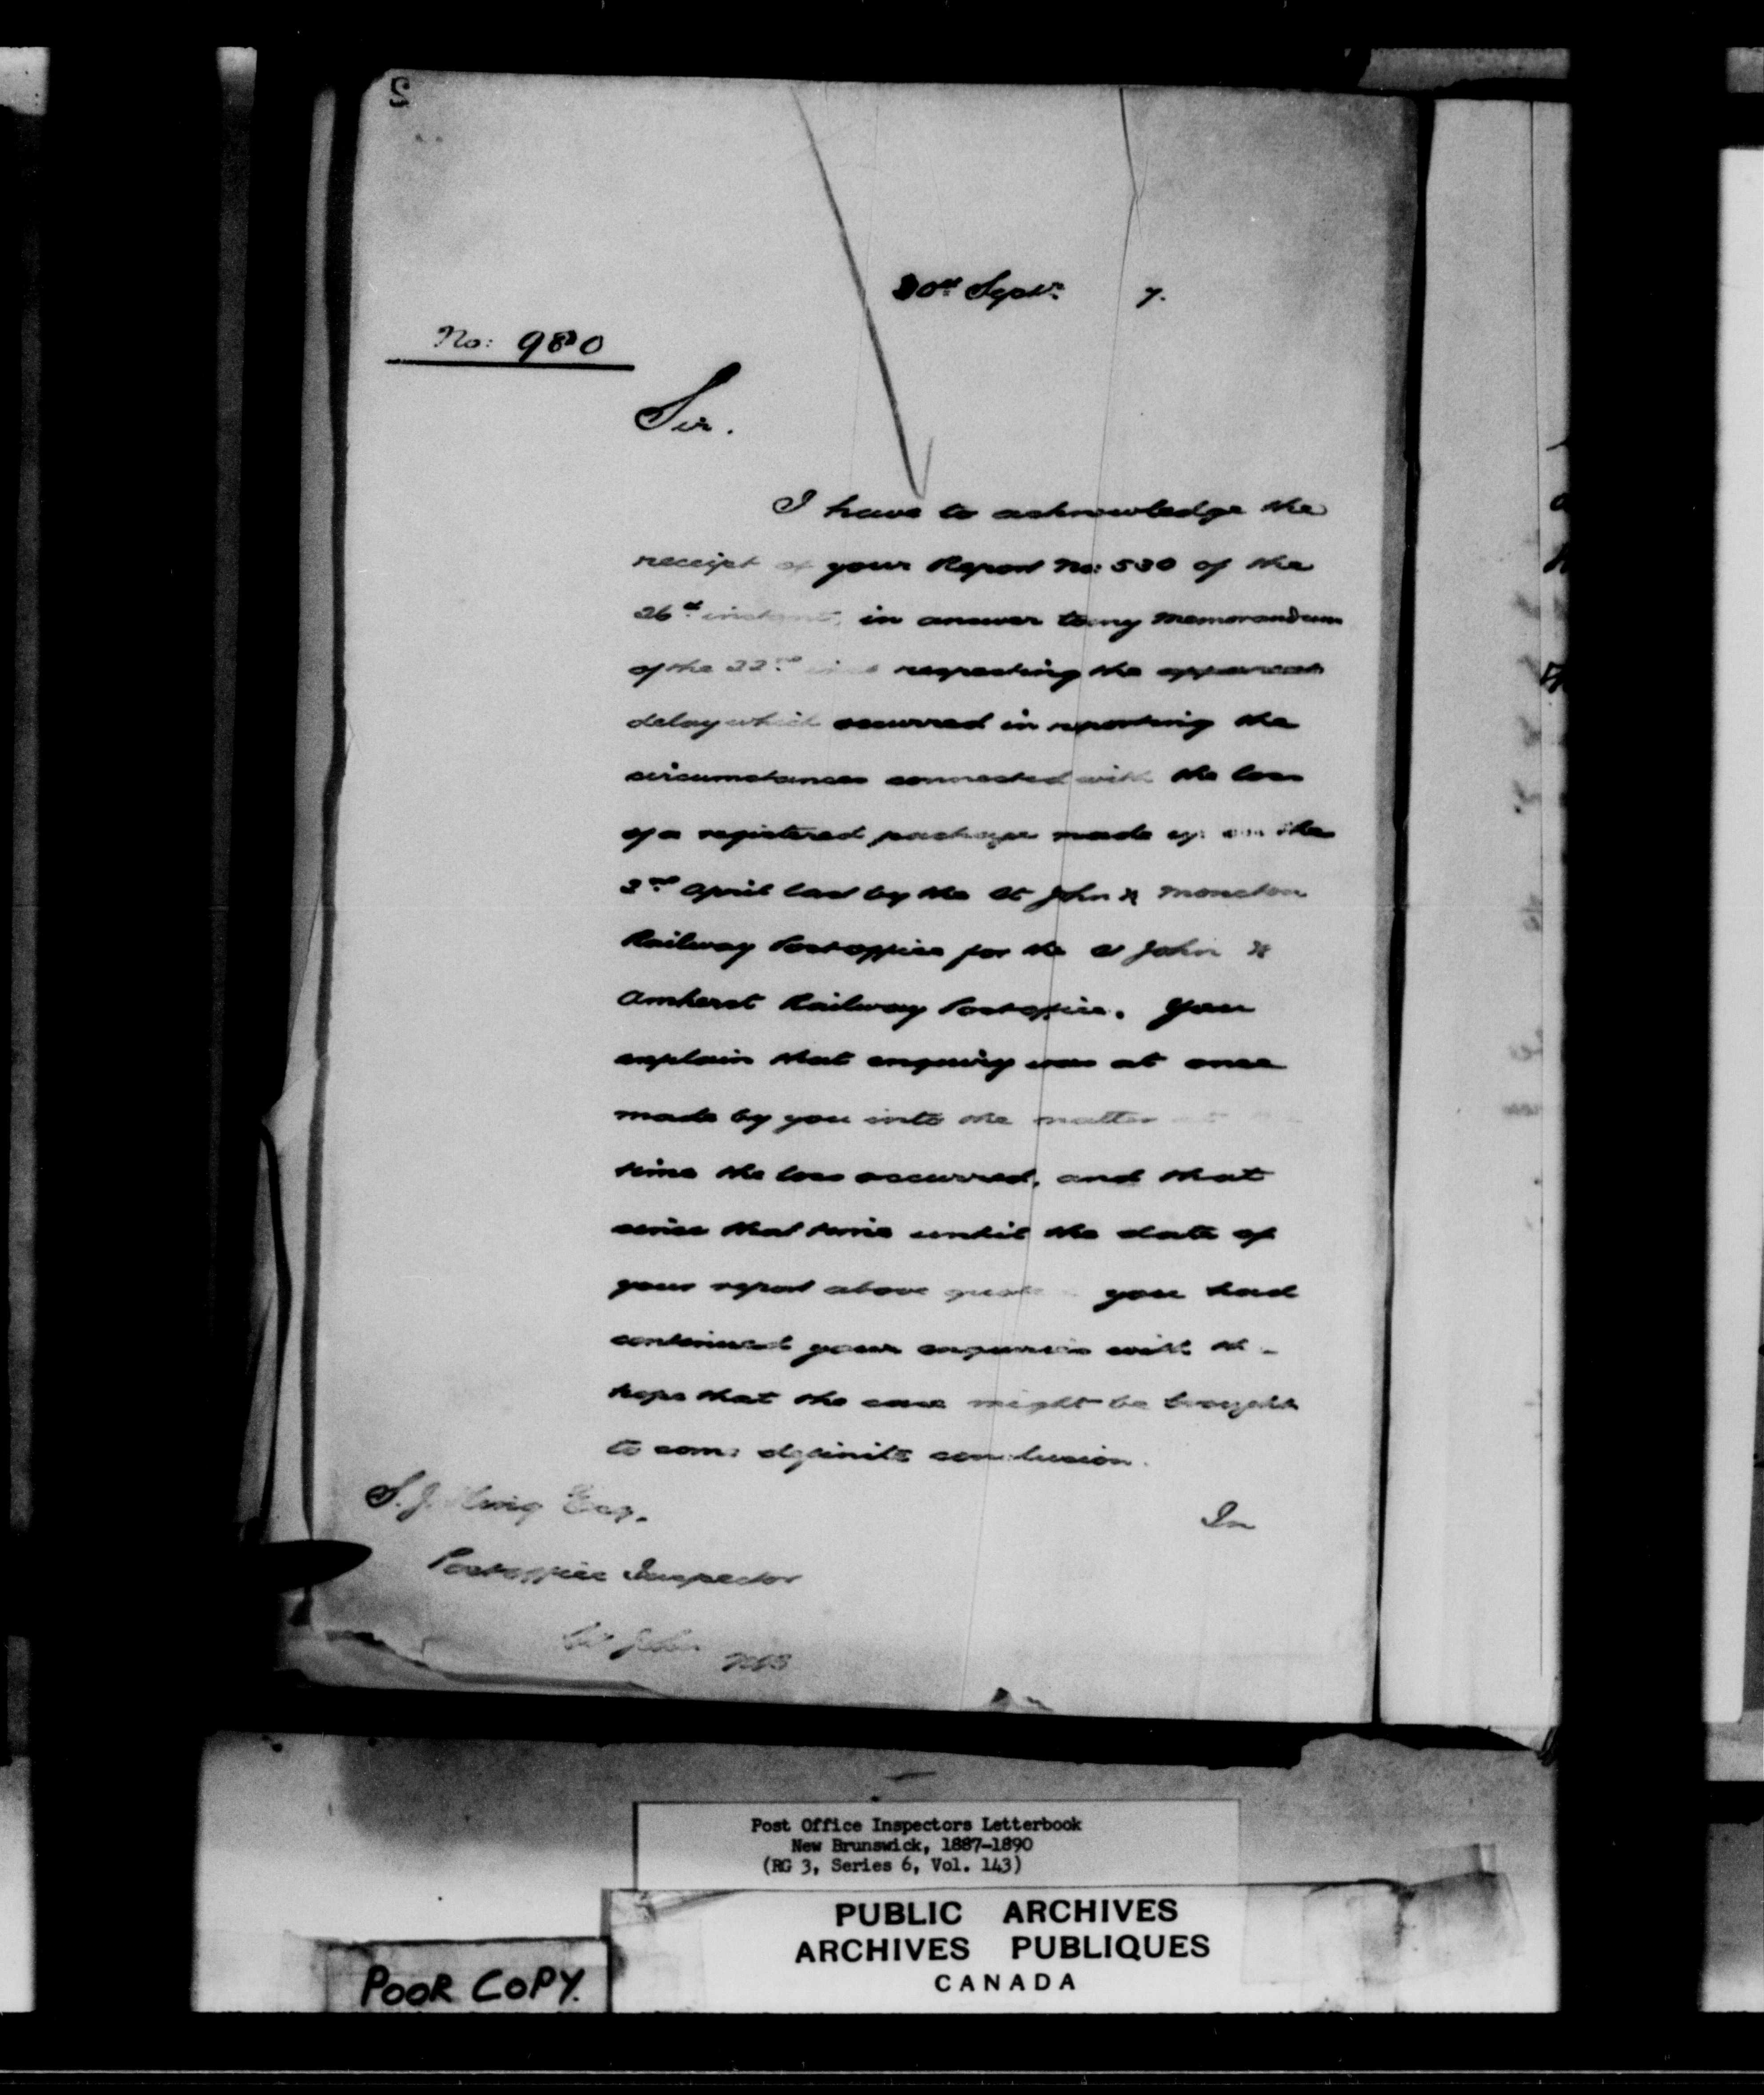 30th Septr. 7.
No: 980
Sir.
I have to acknowledge the
receipt of your Report No: 530 of the
26th instant, in answer to my Memorandum
of the 22nd respecting the apparent
delay which occurred in reporting the
circumstances connected with the loss
of a registered package made up on the
2nd April last by the St John & Moncton
Railway Postoffice for the St John &
Amherst Railway Postoffice. You
explain that enquiry was at once
made by you into the matter at
time the loss occurred, and that
since that time until the date of
your report above you had
continued your enquiries with the
hope that the case might be brought
to some definite conclusion.
S. J. King Esq.
In
Postoffice Inspector
St John NB
Post Office Inspectors Letterbook
New Brunswick, 1887-1890
(RG 3, Series 6, Vol. 143)
PUBLIC ARCHIVES
ARCHIVES PUBLIQUES
CANADA
POOR COPY.